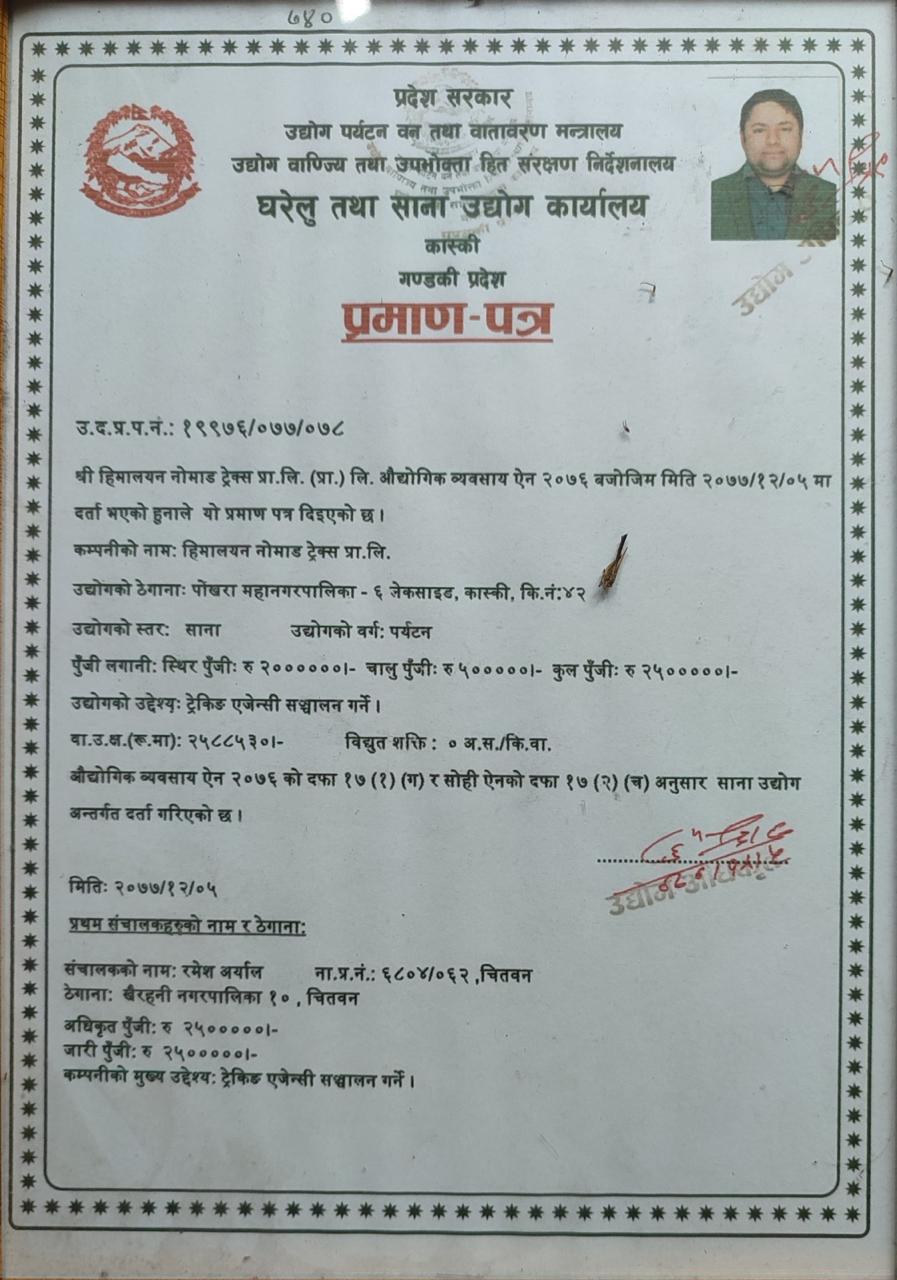 ७४०
प्रदेश सरकार
उद्योग पर्यटन वन तथा वातावरण मन्त्रालय
उद्योग वाणिज्य तथा उपभोक्ता हित संरक्षण निर्देशनालय
घरेलु तथा साना उद्योग कार्यालय
कास्की
गण्डकी प्रदेश
उद्योग
प्रमाण-पत्र
उ.द.प्र.प.नं.: १९९७६/०७७/०७८
श्री हिमालयन नोमाड ट्रेक्स प्रा.लि. (प्रा.) लि. औद्योगिक व्यवसाय ऐन २०७६ बजोजिम मिति २०७७/१२/०५ मा
दर्ता भएको हुनाले यो प्रमाण पत्र दिइएको छ।
कम्पनीको नाम: हिमालयन नोमाड ट्रेक्स प्रा.लि.
उद्योगको ठेगाना: पोंखरा महानगरपालिका - ६ जेकसाइड, कास्की, कि.नं:४२
उद्योगको स्तर: साना उद्योगको वर्ग: पर्यटन
पुँजी लगानी: स्थिर पुँजी: रु २००००००।- चालु पुँजी: रु ५०००००।- कुल पुँजी: रु २५०००००।-
उद्योगको उद्देश्य: ट्रेकिङ एजेन्सी सञ्चालन गर्ने।
वा.उ.क्ष.(रू.मा): २५८८५३०।- विद्युत शक्ति : ० अ.स./कि.वा.
औद्योगिक व्यवसाय ऐन २०७६ को दफा १७ (१) (ग) र सोही ऐनको दफा १७ (२) (च) अनुसार साना उद्योग
अन्तर्गत दर्ता गरिएको छ।
उद्योग अधिकृत
मिति: २०७७/१२/०५
प्रथम संचालकहरुको नाम र ठेगाना:
संचालकको नाम: रमेश अर्याल ना.प्र.नं.: ६८०४/०६२ ,चितवन
ठेगाना: खैरहनी नगरपालिका १० , चितवन
अधिकृत पुँजी: रु २५०००००।-
जारी पुँजी: रु २५०००००।-
कम्पनीको मुख्य उद्देश्य: ट्रेकिङ एजेन्सी सञ्चालन गर्ने।